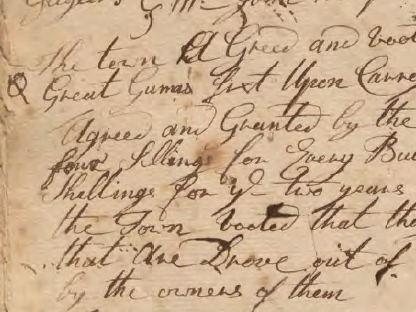 the town A Greed and voot
Great Gunas Lot Upon Carre
Agreed and Granted by the
four Shlings for Every Bu
Shallings for ye two years
the Town Vooted that the
that Are Drove out of
by the owners of them